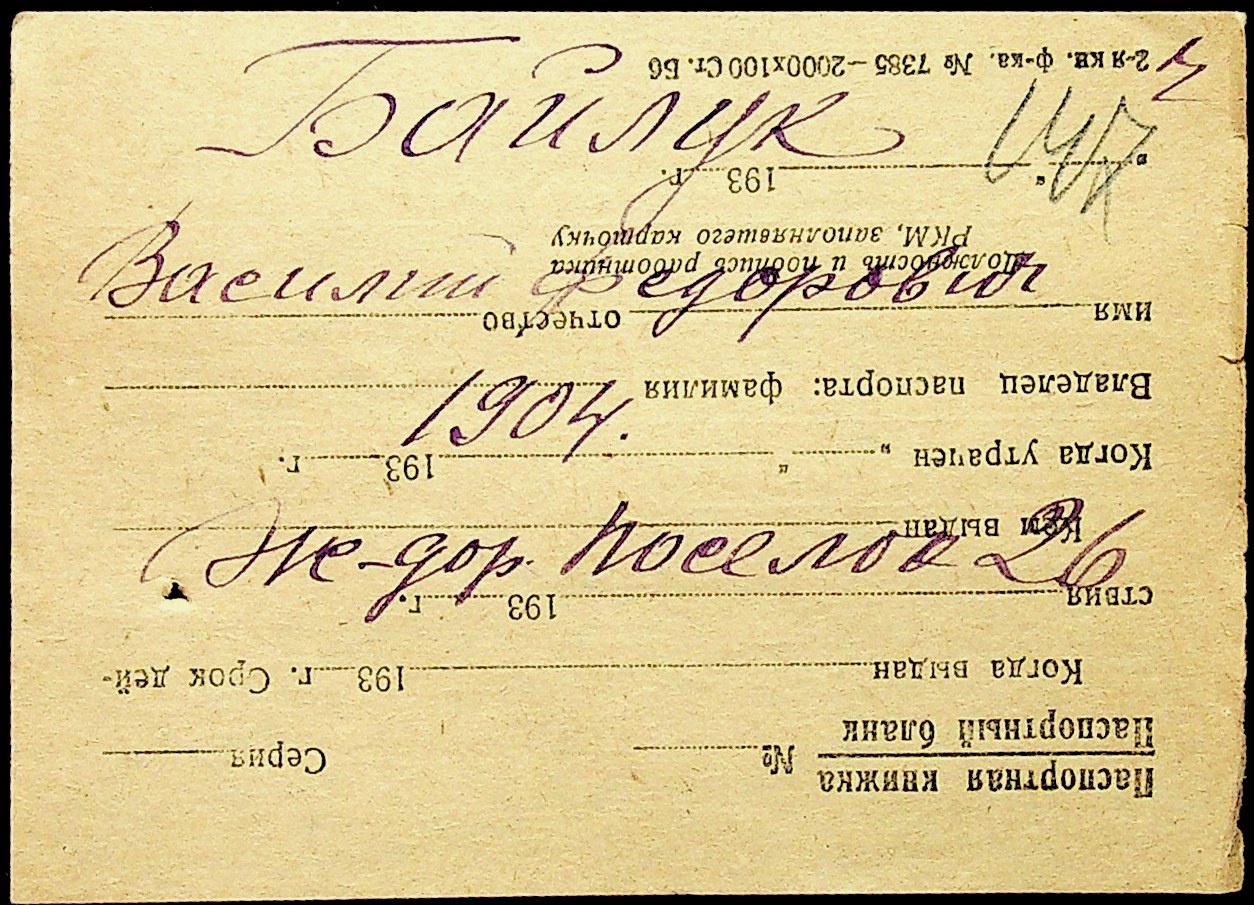 Байлук
Василий Федорович
1904.
Же-дор. Поселок 26
147
Паспортная книжка
Паспортный бланк
№ Серия
Когда выдан 193 г. Срок дей-
ствия 193 г.
Кем выдан
Когда утрачен „ “ 193 г.
Владелец паспорта: фамилия
имя отчество
Должность и подпись работника
РКМ, заполнявшего карточку
„ “ 193 г.
2-я кн. ф-ка. № 7385 — 2000х100 Ст. Бб